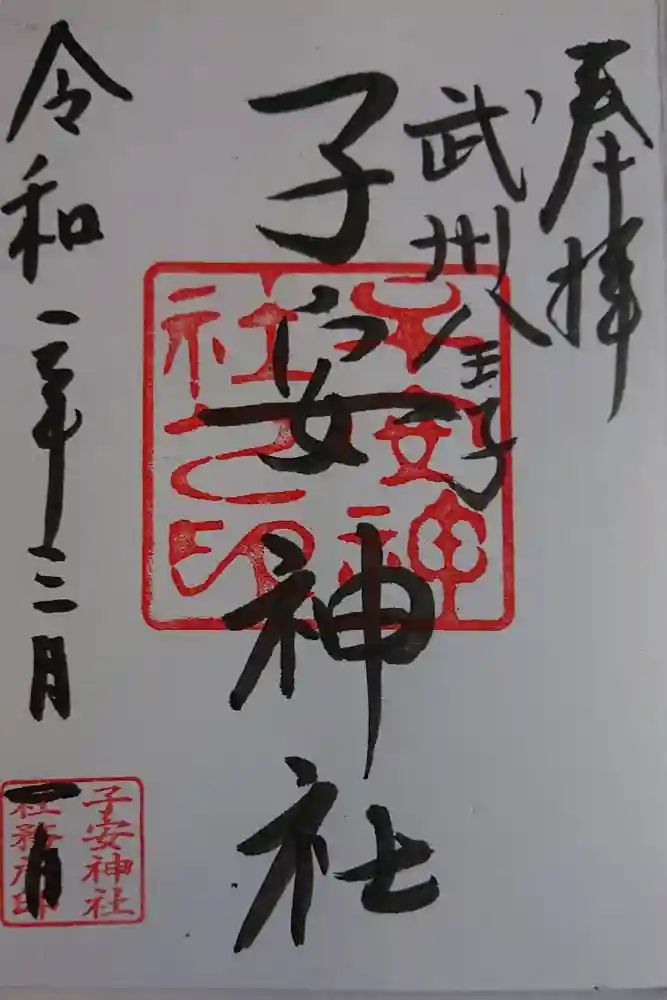 奉拝
武州八王子
子安神社
子安神
社之印
令和二年三月一日
子安神社
社務所印